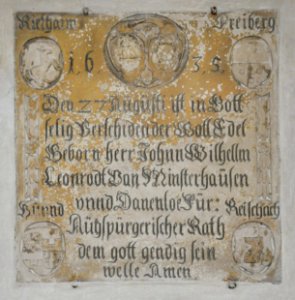 Riethaim Freiberg
1 6 3 5
Den 27 Augusti ist in Gott
selig Verschiden der Woll Edel
Geborn herr Johann Wilhellm
Leonrodt Van Minsterhausen
vnnd Danenloe Für:
Aichspürgerischer Rath
dem gott genedig sein
welle Amen
Reischach